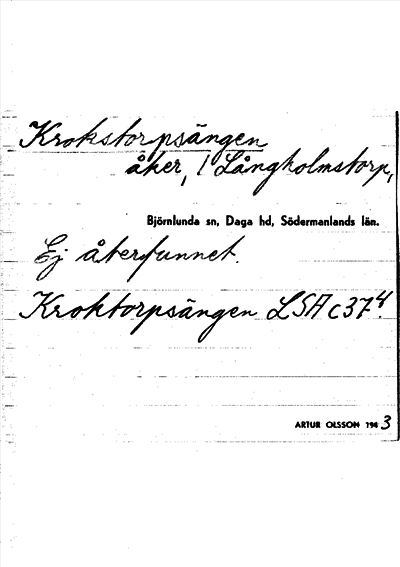 Krokstorpsängen
åker, 1 Långholmstorp,
Björnlunda sn, Daga hd, Södermanlands län.
Ej återfunnet.
Kroktorpsängen LSA C37⁴.
ARTUR OLSSON 1943